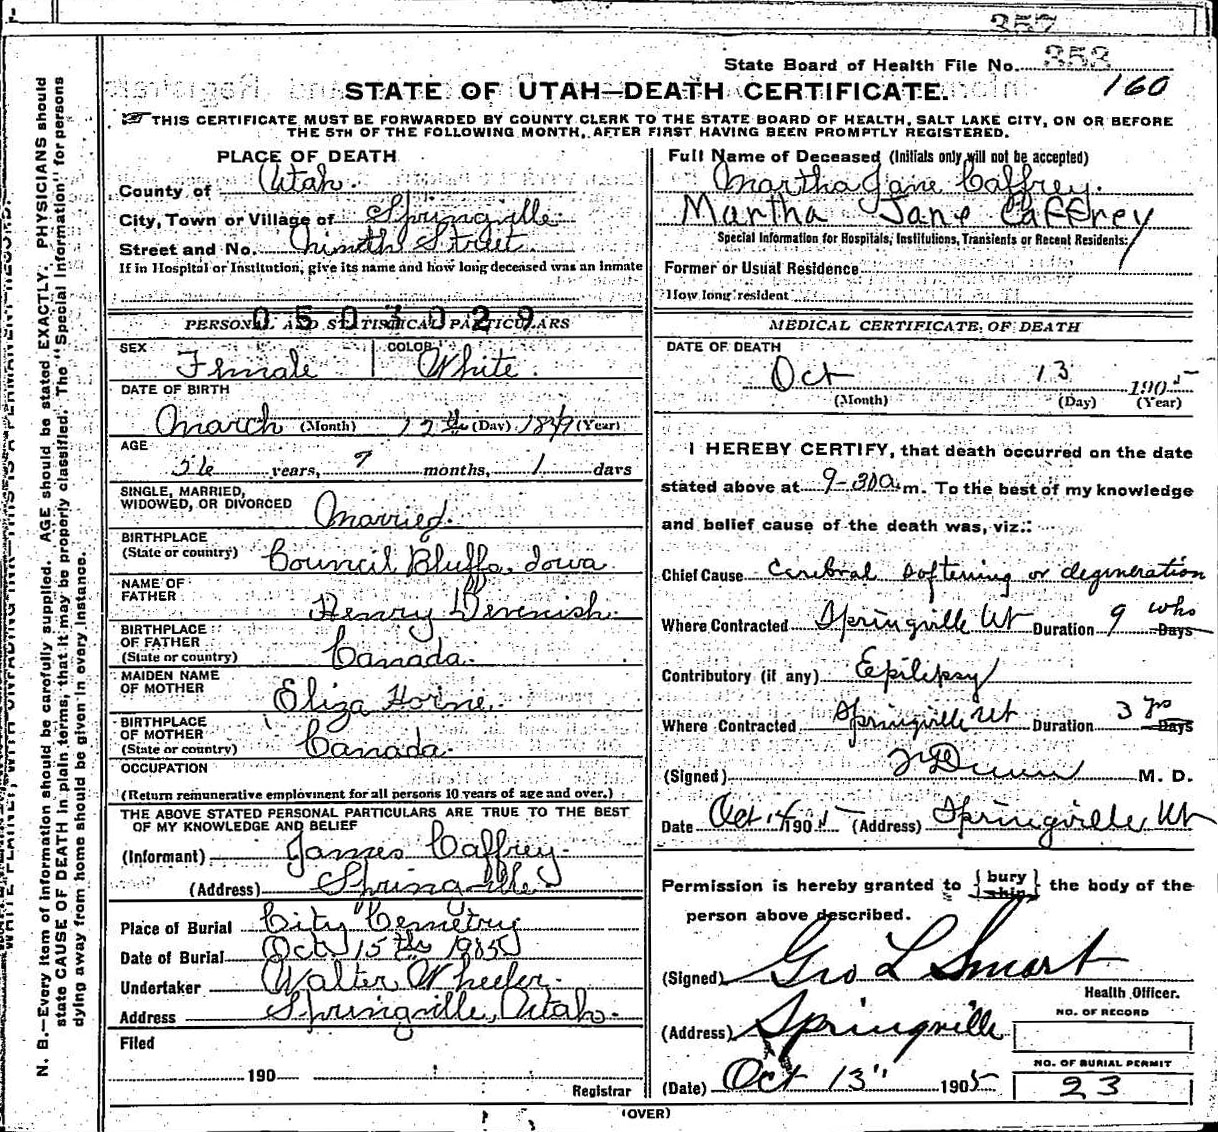 357
State Board of Health File No. 353
160
STATE OF UTAH—DEATH CERTIFICATE.
THIS CERTIFICATE MUST BE FORWARDED BY COUNTY CLERK TO THE STATE BOARD OF HEALTH, SALT LAKE CITY, ON OR BEFORE
THE 5TH OF THE FOLLOWING MONTH, AFTER FIRST HAVING BEEN PROMPTLY REGISTERED.
N. B.—Every item of information should be carefully supplied. AGE should be stated EXACTLY. PHYSICIANS should
state CAUSE OF DEATH in plain terms, that it may be properly classified. The "Special Information" for persons
dying away from home should be given in every instance.
PLACE OF DEATH
County of Utah.
City, Town or Village of Springville
Street and No. Ninth Street
If in Hospital or Institution, give its name and how long deceased was an inmate
0503029
PERSONAL AND STATISTICAL PARTICULARS
SEX Female COLOR White.
DATE OF BIRTH
March (Month) 12th (Day) 1849 (Year)
AGE
56 years, 7 months, 1 days
SINGLE, MARRIED,
WIDOWED, OR DIVORCED Married.
BIRTHPLACE
(State or country) Council Bluffs. Iowa
NAME OF
FATHER Henry Devenish.
BIRTHPLACE
OF FATHER
(State or country) Canada.
MAIDEN NAME
OF MOTHER Eliza Horne.
BIRTHPLACE
OF MOTHER
(State or country) Canada.
OCCUPATION
(Return remunerative employment for all persons 10 years of age and over.)
THE ABOVE STATED PERSONAL PARTICULARS ARE TRUE TO THE BEST
OF MY KNOWLEDGE AND BELIEF
(Informant) James Caffrey.
(Address) Springville.
Place of Burial City Cemetry
Date of Burial Oct 15th 1905
Undertaker Walter Wheeler.
Address Springville, Utah.
Filed
190
Registrar
Full Name of Deceased (Initials only will not be accepted)
Martha Jane Caffrey.
Martha Jane Caffrey
Special Information for Hospitals, Institutions, Transients or Recent Residents:
Former or Usual Residence
How long resident
MEDICAL CERTIFICATE OF DEATH
DATE OF DEATH
Oct 13 1905
(Month) (Day) (Year)
I HEREBY CERTIFY, that death occurred on the date
stated above at 9-30 a. m. To the best of my knowledge
and belief cause of the death was, viz.:
Chief Cause Cerebral softening or degeneration
Where Contracted Springville Ut Duration 9 wks Days
Contributory (if any) Epilepsy
Where Contracted Springville Ut Duration 3 yrs Days
(Signed) Dunn M. D.
Date Oct 14 1905 (Address) Springville, Ut
Permission is hereby granted to { bury ship } the body of the
person above described.
(Signed) Geo L Smart
Health Officer.
(Address) Springville
NO. OF RECORD
NO. OF BURIAL PERMIT
(Date) Oct 13" 1905
23
(OVER)